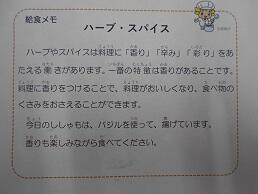 給食メモ
ハーブ・スパイス
ハーブやスパイスは料理に「香り」「辛み」「彩り」をあ
たえる働きがあります。一番の特徴は香りがあることです。
料理に香りをつけることで、料理がおいしくなり、食べ物の
くさみをおさえることができます。
今日のししゃもは、バジルを使って、揚げています。
香りも楽しみながら食べてください。